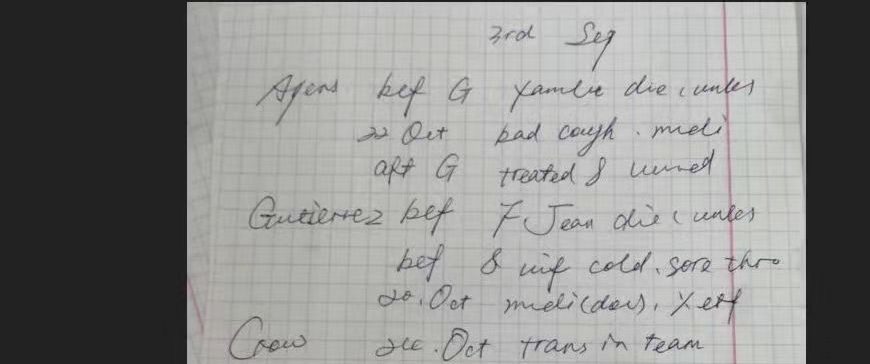 3rd Seg
Ayers bef G die, unles
22 Oct bad cough. medi
aft G treated &
Gutierrez bef 7 Jean die (unles
bef 8 inf cold. sore thro
20. Oct medi(does). X eff
Crow Oct trans in team